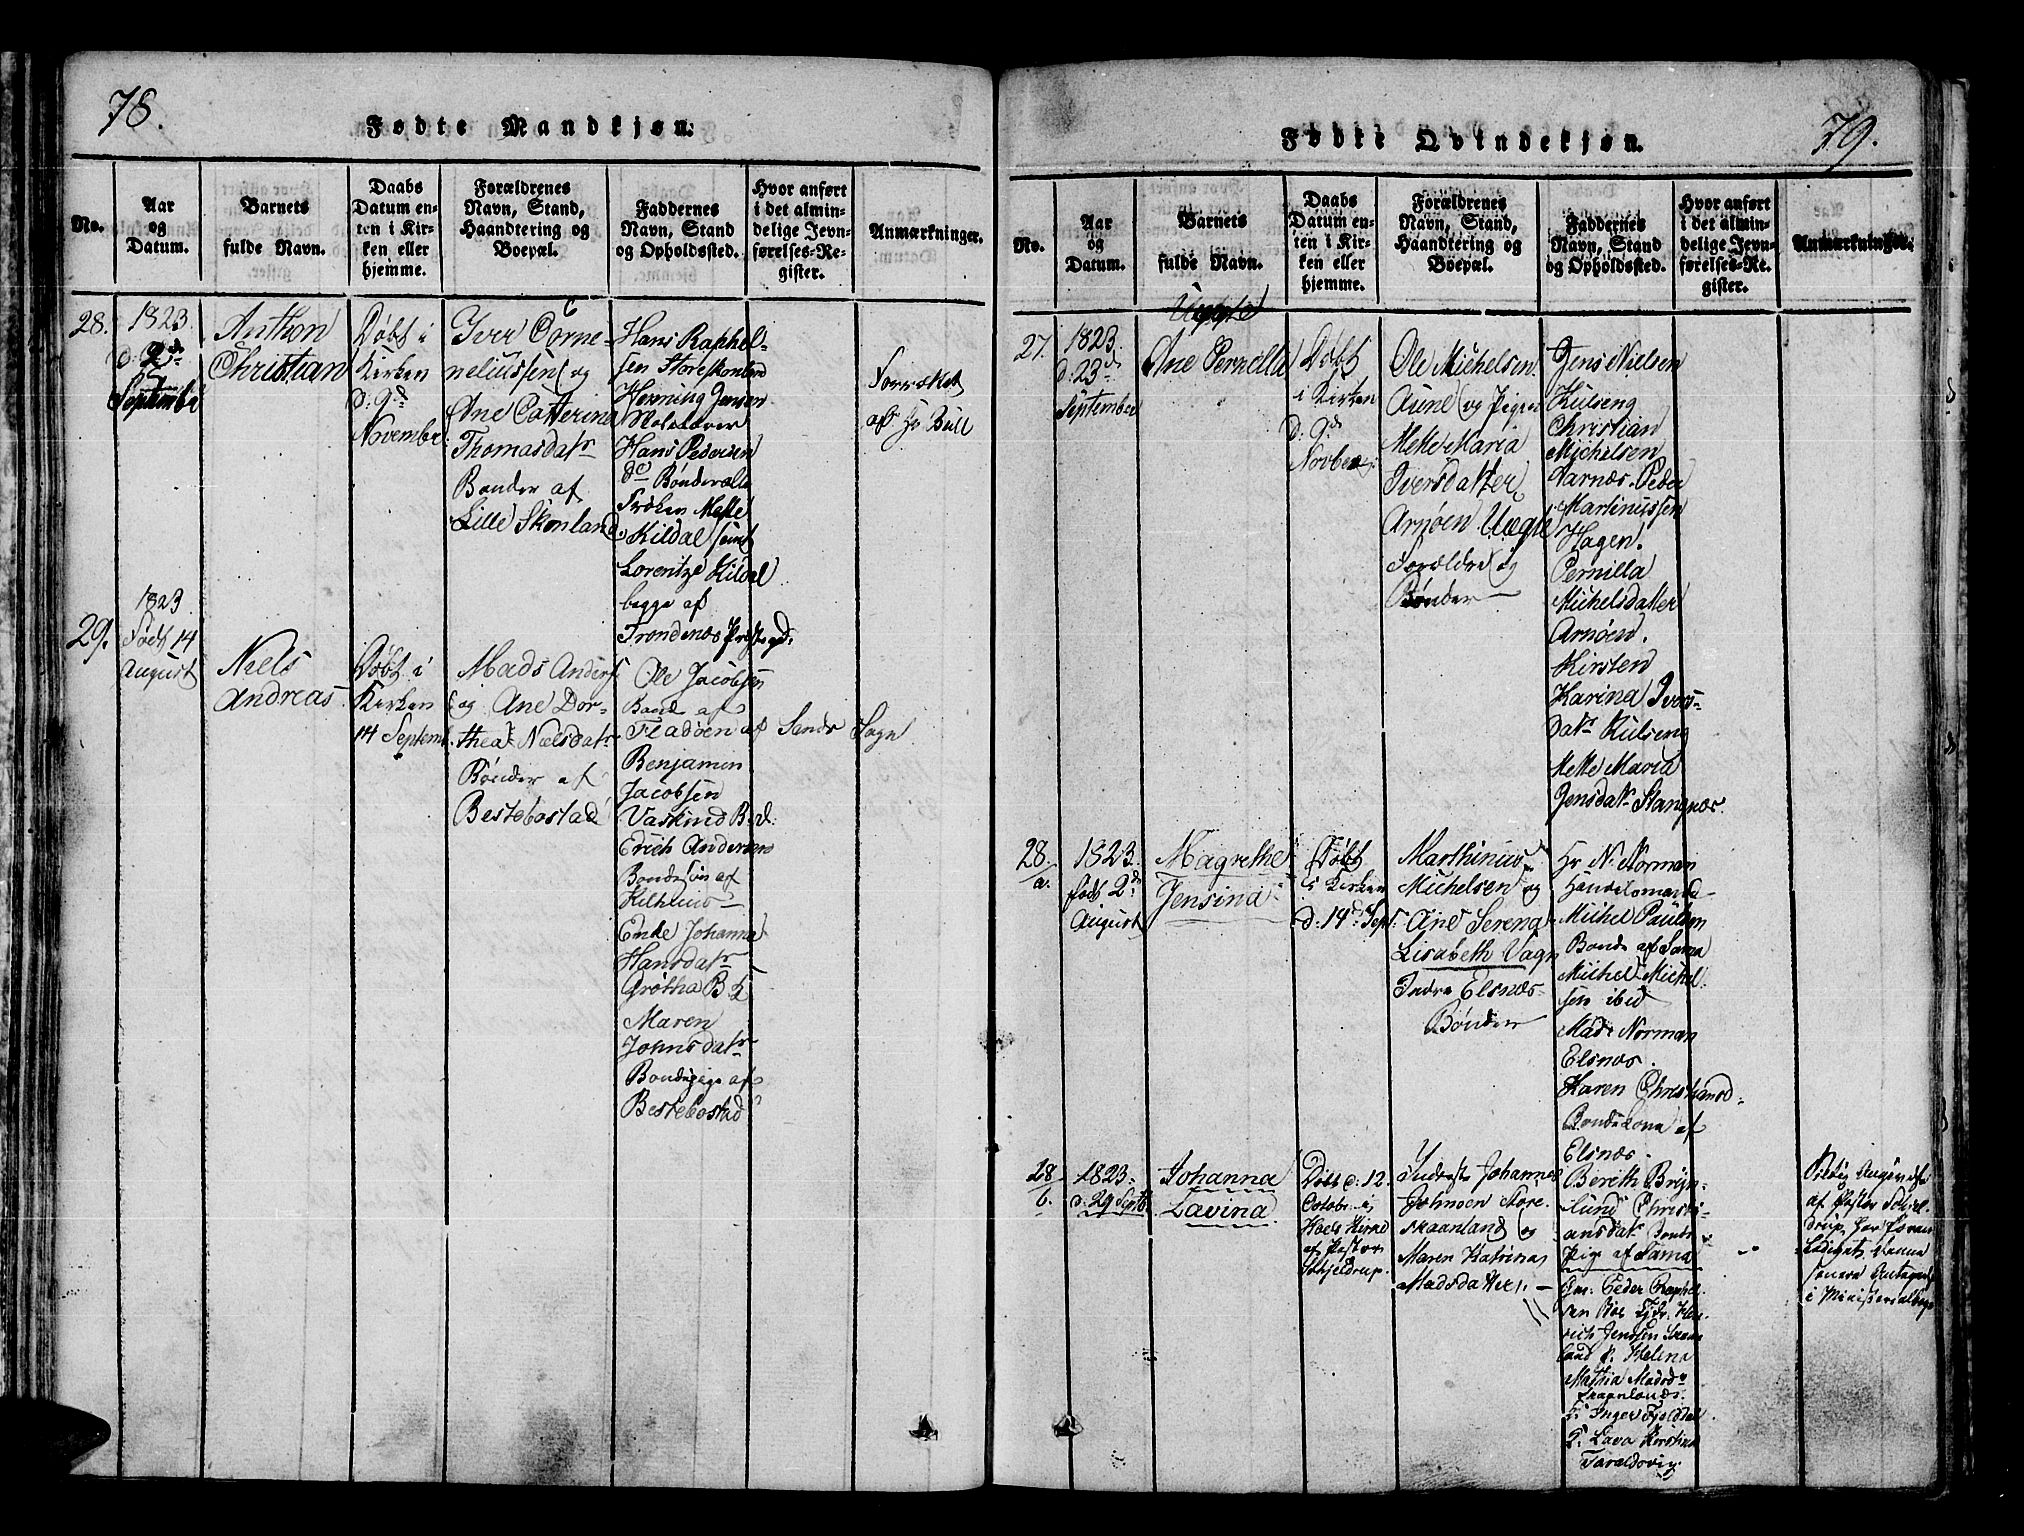 78.
Fødte Mandkjøn.
No.
Aar
og
Datum.
Barnets
fulde Navn.
Daabs
Datum en-
ten i Kir-
ken eller
hjemme.
Forældrenes
Navn, Stand,
Haandtering og
Boepæl.
Faddernes
Navn, Stand
og Opholdssted.
Hvor anført
i det almin-
delige Jevn-
førelses-Re-
gister.
Anmærkninger.
28.
1823
d: 2d
September
Anthon
Christian
Døbt i
Kirken
d: 9d
November
Iver Corne-
neliussen og
Ane Catterina
Thomasdatr
Bønder af
Lille Skonland
Hans Raphel-
sen Storeskonland
Henning Jensen
Hans Pedersen
dc Bønder alle
Frøken Mette
Kildal samt
Lorentze Kildal
begge af
Trondenes Præstegd.
Forrættet
af Hr Bull
29.
1823
Født 14
August
Niels
Andreas
Døbt i
Kirken
14 Septemb.
Mads Anders
og Ane Dor-
thea Nielsdatr
Bønder af
Bestebostad
Ole Jacobsen
Bonde af
Fladøen af Sands Sogn
Benjamin
Jacobsen
Vaskind B.d.
Erich Andersen
Bondesøn af
Enke Johanna
Hansdatr
Grøtha B.k
Maren
Johnsdatr
Bondepige af
Bestebostad
79.
Fødte Qvindekjøn.
No.
Aar
og
Datum.
Barnets
fulde Navn.
Daabs
Datum en-
ten i Kir-
ken eller
hjemme.
Forældrenes
Navn, Stand,
Haandtering og
Boepæl.
Faddernes
Navn, Stand
og Opholdssted.
Hvor anført
i det almin-
delige Jevn-
førelses-Re-
gister.
Anmærkninger.
27.
1823.
d. 23d
September
Uægte
Ane Pernella
Døbt
i Kirken
d: 9d
Novber
Ole Michelsen
Aune og Pigen
Mette Maria
Iversdatter
Arnøen Uægte
Forældre og
Bønder
Jens Nielsen
Kulseng
Christian
Michelsen
Aarnæs. Peder
Martinussen
Hagen.
Pernilla
Michelsdatter
Arnøen.
Kirsten
Karina Ivers-
datr Kulseng
Mette Maria
Jensdatr Stangnæs.
28
a.
1823
født 2d
August
Magrethe
Jensina
Døbt
i Kirken
d. 14d Sept.
Marthinus
Michelsen og
Ane Serena
Lisabeth Vagn
Indre Elsnæs
Bønder
Hr N: Norman
Handelsmand
Michel Paulsen
Bonde af Sama
Michel Michel-
sen ibid
Mad: Norman
Elsnæs.
Karen Christiansd.
Bondekone af
Elsnæs.
Bereth Bryn-
lund Christi-
ansdatr Bonde
Pig af Sama
28
b.
1823.
d. 29 Septb.
Johanna
Lavina
Døbt d: 12.
Octobr. i
Hoels Kirke
af Pastor
Schjeldrup.
Inderste Johannes
Johnsen Store
skaanland og
Maren Katrina
Madsdatter.
Gm. Peder Raphel
sen Boe Hen-
rich Jenssen Skaan
land P. Helena
Mathia Madsdr
Skaanlands.
P. Inger Fjeldal.
P. Lava Kerstina
Taraldsvig
af Pastor Schjel-
drup, har foran
i Ministerialbogen